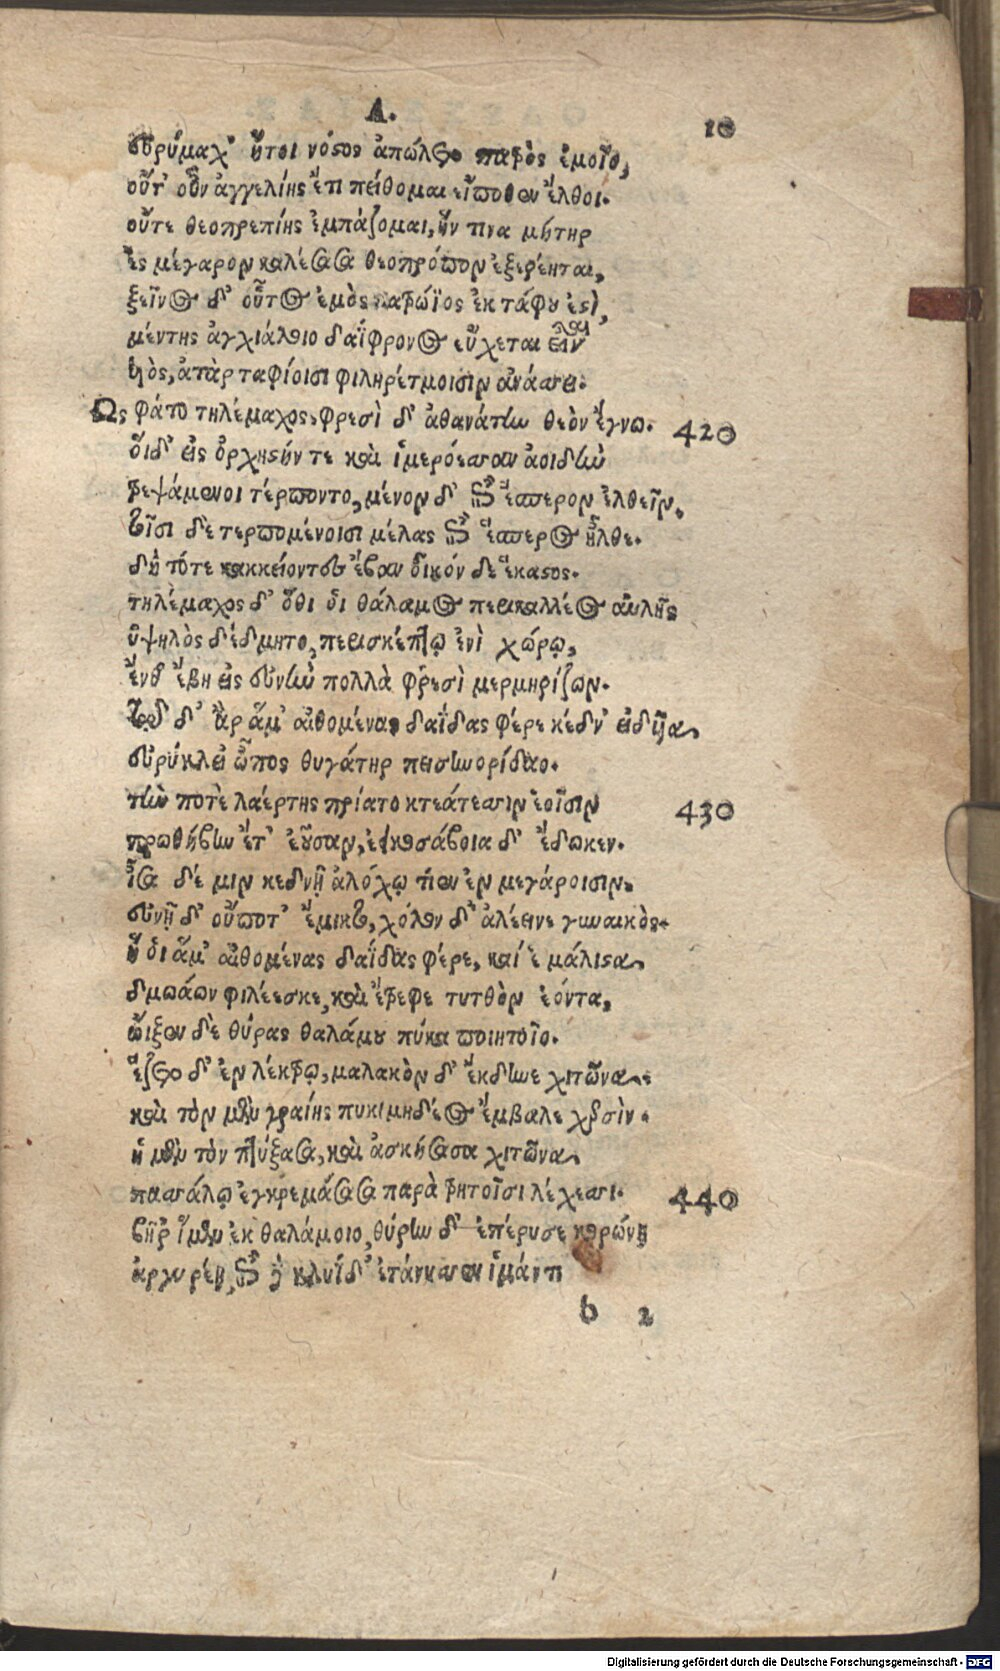 Α.
10
Εὐρύμαχ' ἤτοι νόστος ἀπώλετο πατρὸς ἐμοῖο,
οὔτ' οὖν ἀγγελίης ἔτι πείθομαι εἴποθεν ἔλθοι.
οὔτε θεοπρεπίης ἐμπάζομαι, ἥν τινα μήτηρ
ἐς μέγαρον καλέσασα θεοπρόπον ἐξερέηται,
ξεῖνος δ' οὗτος ἐμὸς πατρώϊος ἐκ τάφου ἐστὶ,
μέντης ἀγχιάλοιο δαΐφρονος εὔχεται εἶναι
υἱὸς, ἀτὰρ ταφίοισι φιληρέτμοισιν ἀνάσσει.
Ὣς φάτο τηλέμαχος, φρεσὶ δ' ἀθανάτην θεὸν ἔγνω. 420
οἵδ' εἰς ὀρχηστύν τε καὶ ἱμερόεσσαν ἀοιδὴν
τρεψάμενοι τέρποντο, μένον δ' ἐπὶ ἕσπερον ἐλθεῖν.
τοῖσι δὲ τερπομένοισι μέλας ἐπὶ ἕσπερος ἦλθε.
δὴ τότε κακκείοντες ἔβαν οἶκόν δε ἕκαστος.
τηλέμαχος δ' ὅθι οἱ θάλαμος περικαλλέος αὐλῆς
ὑψηλὸς δέδμητο, περισκέπτῳ ἐνὶ χώρῳ,
ἔνθ' ἔβη εἰς εὐνὴν πολλὰ φρεσὶ μερμηρίζων.
τῷ δ' ἄρ' ἅμ' αἰθομένας δαΐδας φέρε κέδν' εἰδυῖα
εὐρύκλει' ὦπος θυγάτηρ πεισηνορίδαο.
τήν ποτε λαέρτης πρίατο κτεάτεσσιν ἑοῖσιν 430
πρωθήβην ἔτ' ἐοῦσαν, ἐεικοσάβοια δ' ἔδωκεν.
ἶσα δέ μιν κεδνῇ ἀλόχῳ τίεν ἐν μεγάροισιν,
εὐνῇ δ' οὔποτ' ἔμικτο, χόλον δ' ἀλέεινε γυναικὸς.
ἥ οἱ ἅμ' αἰθομένας δαΐδας φέρε, καί ἑ μάλιστα
δμωάων φιλέεσκε, καὶ ἔτρεφε τυτθὸν ἐόντα,
ὤιξεν δὲ θύρας θαλάμου πύκα ποιητοῖο.
ἕζετο δ' ἐν λέκτρῳ, μαλακὸν δ' ἔκδυνε χιτῶνα.
καὶ τὸν μὲν γραίης πυκιμηδέος ἔμβαλε χερσὶν.
ἡ μὲν τὸν πτύξασα, καὶ ἀσκήσασα χιτῶνα
πασσάλῳ ἐγκρεμάσασα παρὰ τρητοῖσι λέχεσσι. 440
βῆῥ' ἴμεν ἐκ θαλάμοιο, θύρην δ' ἐπέρυσε κορώνῃ
ἀργυρέῃ, ἐπὶ δὲ κληΐδ' ἐτάνυσσεν ἱμάντι
b 2
Digitalisierung gefördert durch die Deutsche Forschungsgemeinschaft - DFG